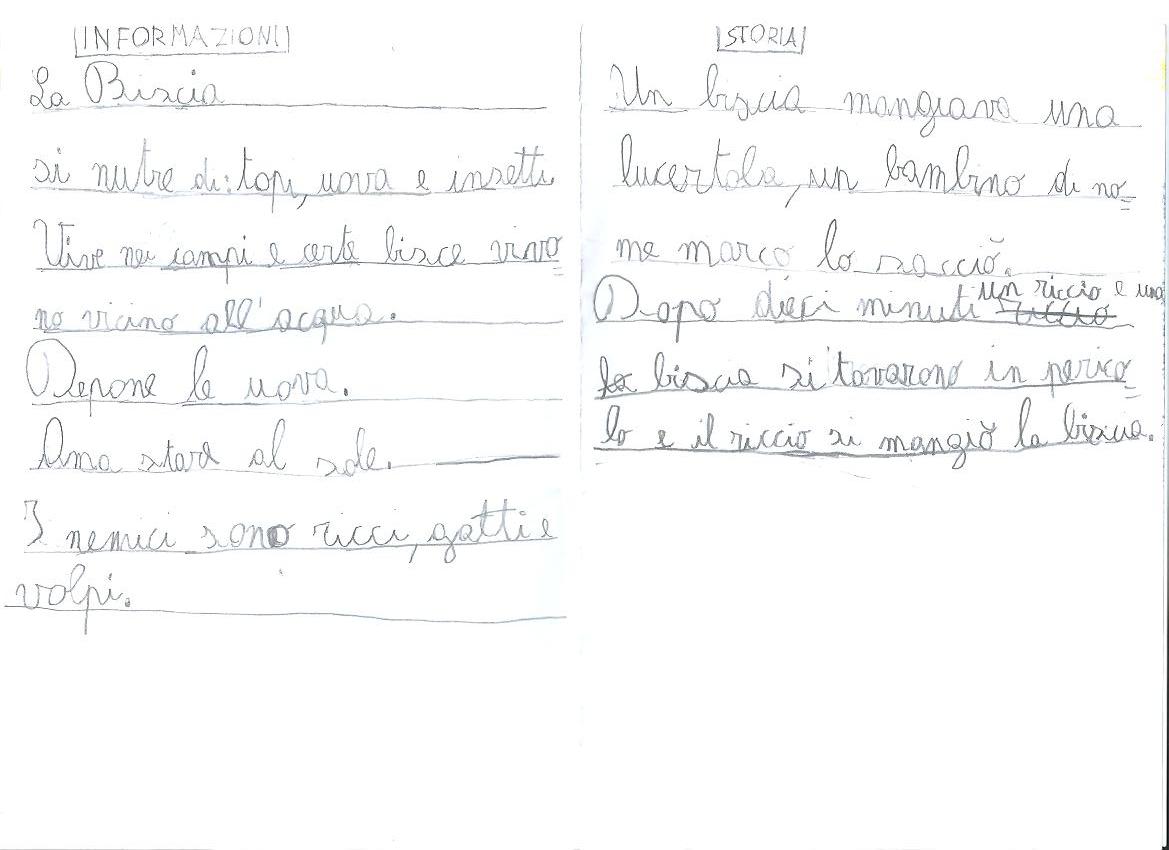 INFORMAZIONI
La Biscia
si nutre di: topi, uova e insetti
Vive nei campi e certe bisce vivo=
no vicino all'acqua.
Depone le uova.
Ama stare al sole.
I nemici sono ricci, gatti e
volpi.
STORIA
Un biscia mangiava una
lucertola, un bambino di no=
me marco lo scacciò.
Dopo dieci minuti un riccio e una
biscia si tovarono in perico=
lo e il riccio si mangiò la biscia.